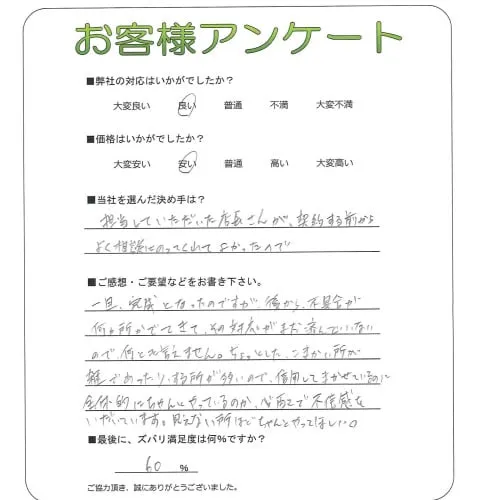 お客様アンケート
■弊社の対応はいかがでしたか?
大変良い 良い 普通 不満 大変不満
■価格はいかがでしたか?
大変安い 安い 普通 高い 大変高い
■当社を選んだ決め手は?
担当していただいた店長さんが、契約する前から
よく相談にのってくれてよかったので
■ご感想・ご要望などをお書き下さい。
一旦、完成となったのですが、後から、不具合が
何か所かでてきて、その対応がまだ済んでいない
ので、何とも言えません。ちょっとした、こまかい所が
雑であったりする所が多いので、信用してまかせているのに
全体的にちゃんとやっているのか、心配で不信感を
いだいています。見えない所ほどちゃんとやってほしい。
■最後に、ズバリ満足度は何%ですか?
60 %
ご協力頂き、誠にありがとうございました。